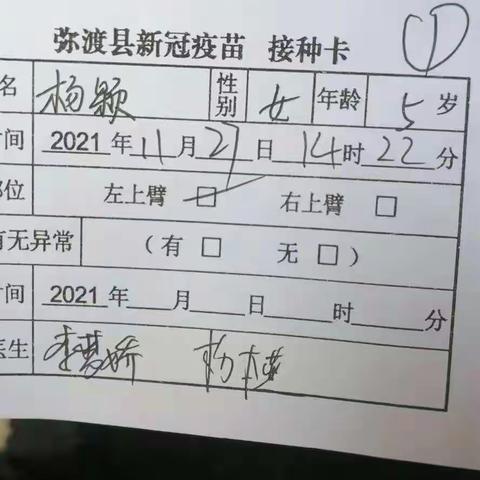 弥渡县新冠疫苗 接种卡 ①
名 杨颖 性别 女 年龄 5 岁
时间 2021 年 11 月 27 日 14 时 22 分
部位 左上臂 ☑ 右上臂 □
有无异常 （有 □ 无 □）
时间 2021 年 月 日 时 分
医生 李梦娇